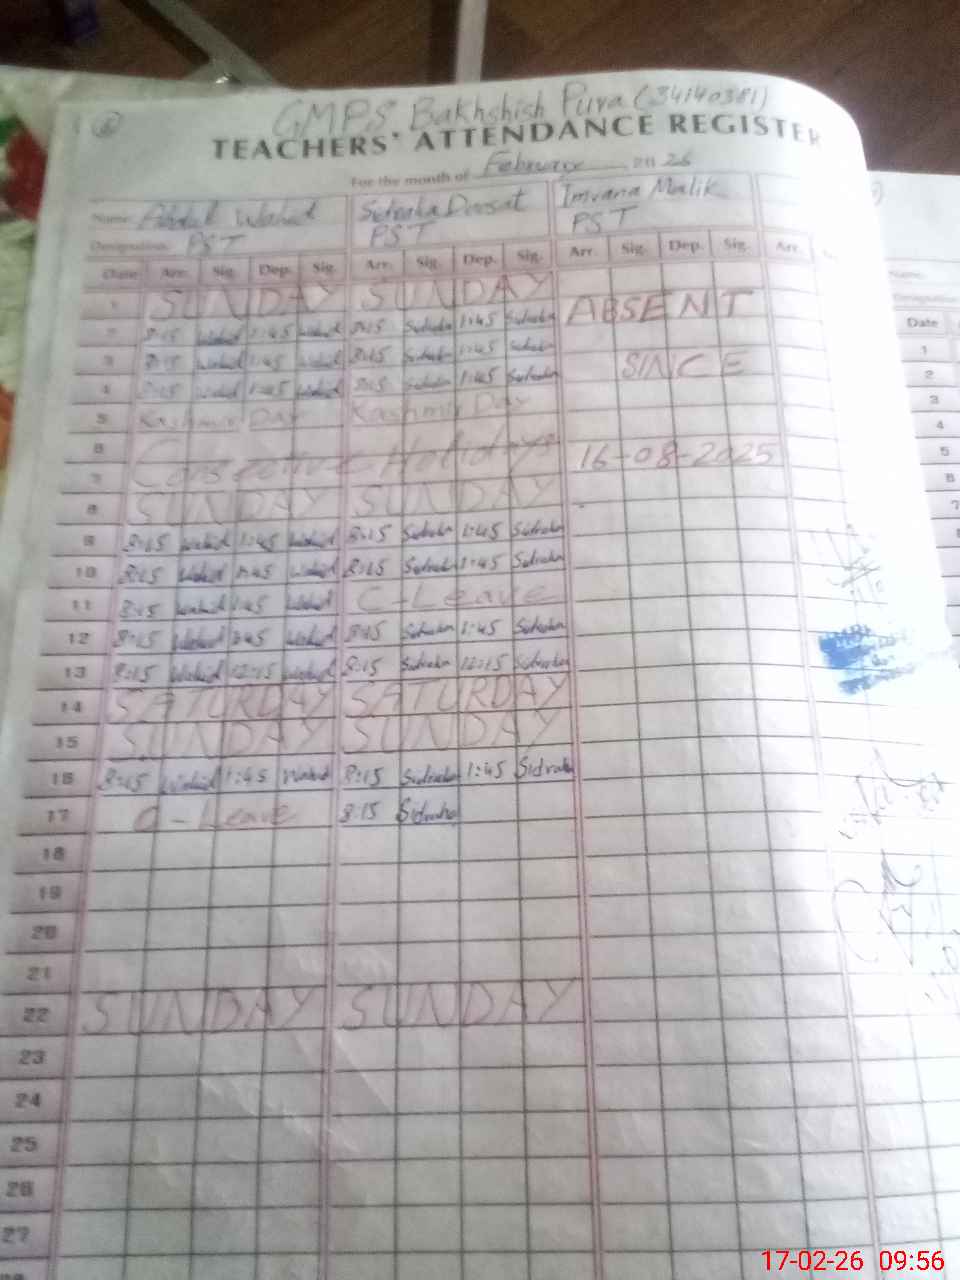 GMPS Bakhshish Pura (34140381)
TEACHERS' ATTENDANCE REGISTER
For the month of February 20 26
Name Abdul Wahid Sidraha Imrana Malik
Designation PST PST PST
Date Arr. Sig. Dep. Sig. Arr. Sig. Dep. Sig. Arr. Sig. Dep. Sig. Arr.
1 SUNDAY SUNDAY
2 8:15 Wahid 1:45 Wahid 8:15 Sidraha 1:45 Sidraha ABSENT
3 8:15 Wahid 1:45 Wahid 8:15 Sidraha 1:45 Sidraha SINCE
4 8:15 Wahid 1:45 Wahid 8:15 Sidraha 1:45 Sidraha
5 Kashmir Day Kashmir Day
6 Holidays 16-08-2025
7
8 SUNDAY SUNDAY
9 8:15 Wahid 1:45 Wahid 8:15 Sidraha 1:45 Sidraha
10 8:15 Wahid 1:45 Wahid 8:15 Sidraha 1:45 Sidraha
11 8:15 Wahid 1:45 Wahid C-Leave
12 8:15 Wahid 1:45 Wahid 8:15 Sidraha 1:45 Sidraha
13 8:15 Wahid 12:15 Wahid 8:15 Sidraha 12:15 Sidraha
14 SATURDAY SATURDAY
15 SUNDAY SUNDAY
16 8:15 Wahid 1:45 Wahid 8:15 Sidraha 1:45 Sidraha
17 C-Leave 8:15 Sidraha
18
19
20
21
22 SUNDAY SUNDAY
23
24
25
26
27
Name
Designation
Date
1
2
3
4
5
6
7
17-02-26 09:56